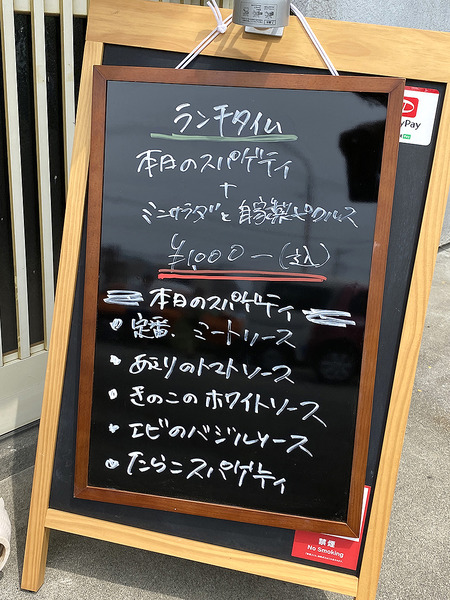 ランチタイム
本日のスパゲティ
+
ミニサラダと自家製ピクルス
¥1,000-(税込)
本日のスパゲティ
• 定番、ミートソース
• あさりのトマトソース
• きのこのホワイトソース
• エビのバジルソース
• たらこスパゲティ
yPay
禁煙
No Smoking